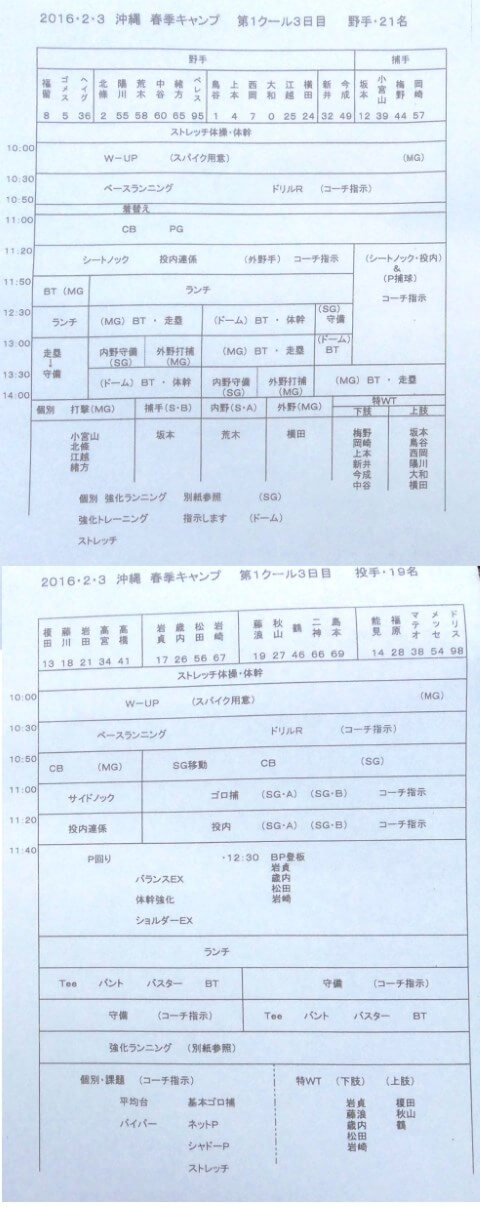 2016・2・3 沖縄 春季キャンプ 第1クール3日目 野手・21名
野手 捕手
福留 ゴメス ヘイグ 北條 陽川 荒木 中谷 緒方 ペレス 鳥谷 上本 西岡 大和 江越 横田 新井 今成 坂本 小宮山 梅野 岡崎
8 5 36 2 55 58 60 65 95 1 4 7 0 25 24 32 49 12 39 44 57
ストレッチ体操・体幹
10:00
W－UP (スパイク用意) (MG)
10:30
ベースランニング ドリルR (コーチ指示)
10:50
着替え
11:00
CB PG
11:20
シートノック 投内連係 (外野手) コーチ指示 (シートノック・投内)
&
(P捕球)
コーチ指示
11:50
BT (MG ランチ
12:30
ランチ (MG) BT ・ 走塁 (ドーム) BT ・ 体幹 (SG) 守備
13:00
走塁 ↓ 守備 内野守備 (SG) 外野打捕 (MG) (MG) BT ・ 走塁 (ドーム) BT
13:30
(ドーム) BT ・ 体幹 内野守備 (SG) 外野打捕 (MG) (MG) BT ・ 走塁
14:00
個別 打撃(MG) 捕手(S・B) 内野(S・A) 外野(MG) 特WT
下肢 上肢
小宮山 坂本 荒木 横田 梅野 坂本
北條 岡崎 鳥谷
江越 上本 西岡
緒方 新井 陽川
今成 大和
中谷 横田
個別 強化ランニング 別紙参照 (SG)
強化トレーニング 指示します (ドーム)
ストレッチ
2016・2・3 沖縄 春季キャンプ 第1クール3日目 投手・19名
榎田 藤川 岩田 高宮 高橋 岩貞 歳内 松田 岩崎 藤浪 秋山 鶴 二神 島本 能見 福原 マテオ メッセ ドリス
13 18 21 34 41 17 26 56 67 19 27 46 66 69 14 28 38 54 98
ストレッチ体操・体幹
10:00
W－UP (スパイク用意) (MG)
10:30
ベースランニング ドリルR (コーチ指示)
10:50
CB (MG) SG移動 CB (SG)
11:00
サイドノック ゴロ捕 (SG・A) (SG・B) コーチ指示
11:20
投内連係 投内 (SG・A) (SG・B) コーチ指示
11:40
P回り ・12:30 BP登板
岩貞
バランスEX 歳内
松田
体幹強化 岩崎
ショルダーEX
ランチ
Tee バント バスター BT 守備 (コーチ指示)
守備 (コーチ指示) Tee バント バスター BT
強化ランニング (別紙参照)
個別・課題 (コーチ指示) 特WT (下肢) (上肢)
平均台 基本ゴロ捕 岩貞 榎田
藤浪 秋山
バイパー ネットP 歳内 鶴
松田
シャドーP 岩崎
ストレッチ